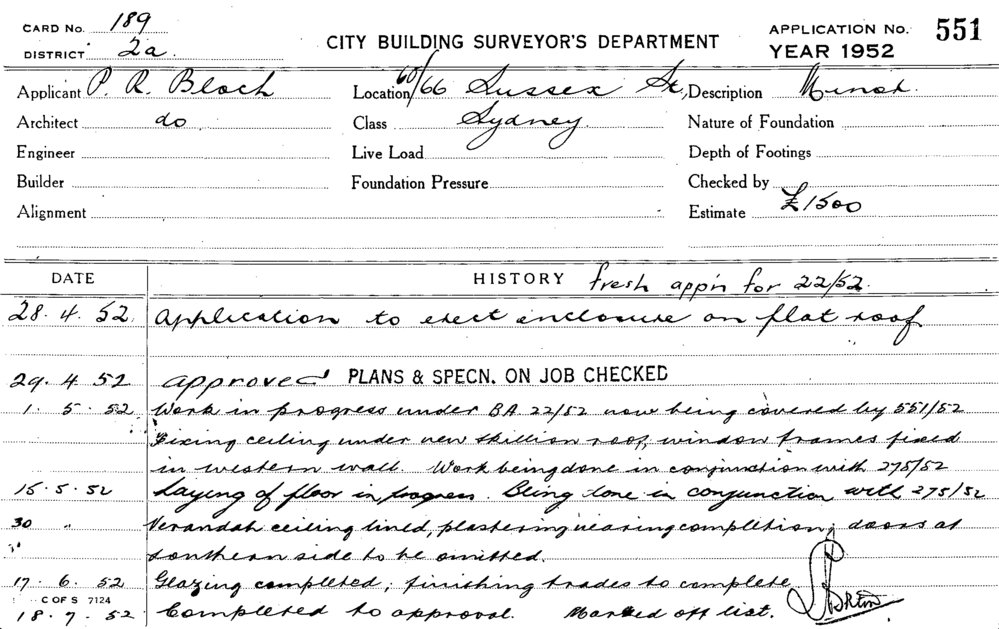 CARD No. 189
DISTRICT 2a.
CITY BUILDING SURVEYOR'S DEPARTMENT
APPLICATION No. 551
YEAR 1952
Applicant P. R. Bloch Location 60/66 Sussex St, Description Minor.
Architect do Class Sydney. Nature of Foundation
Engineer Live Load Depth of Footings
Builder Foundation Pressure Checked by
Alignment Estimate £1500
DATE HISTORY fresh app'n for 22/52.
28. 4. 52. Application to erect enclosure on flat roof
29. 4. 52 approved PLANS & SPECN. ON JOB CHECKED
1. 5. 52. Work in progress under BA 22/52 now being covered by 551/52
Fixing ceiling under new skillion roof, window frames fixed
in western wall. Work being done in conjunction with 275/52
15. 5. 52 Laying of floor in progress. Being done in conjunction with 275/52
30 " Verandah ceiling lined, plastering nearing completion; doors at
southern side to be omitted.
17. 6. 52 Glazing completed; finishing trades to complete
C OF S 7124
18. 7. 52 Completed to approval. Marked off list.